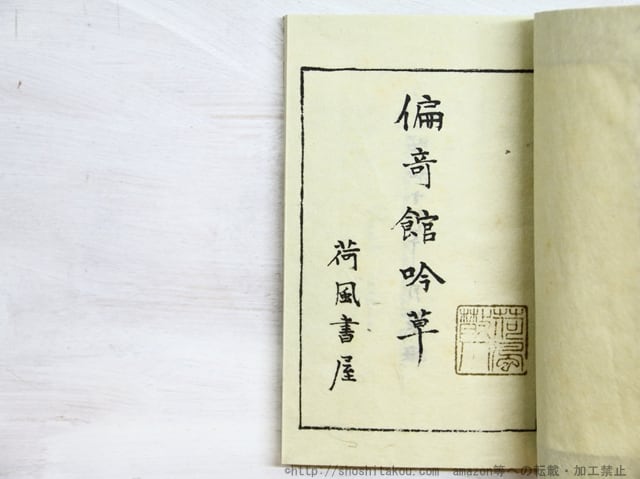 偏奇館吟草
荷風書屋
©http://shoshitakou.com amazon等への転載・加工禁止